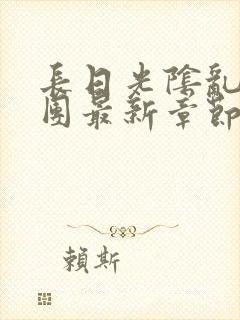 長日光陰亂
團最新章節
賴斯